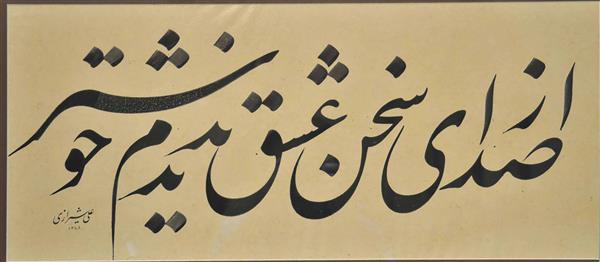 از صدای سخن عشق ندیدم خوشتر
علی شیرازی
۱۳۸۸